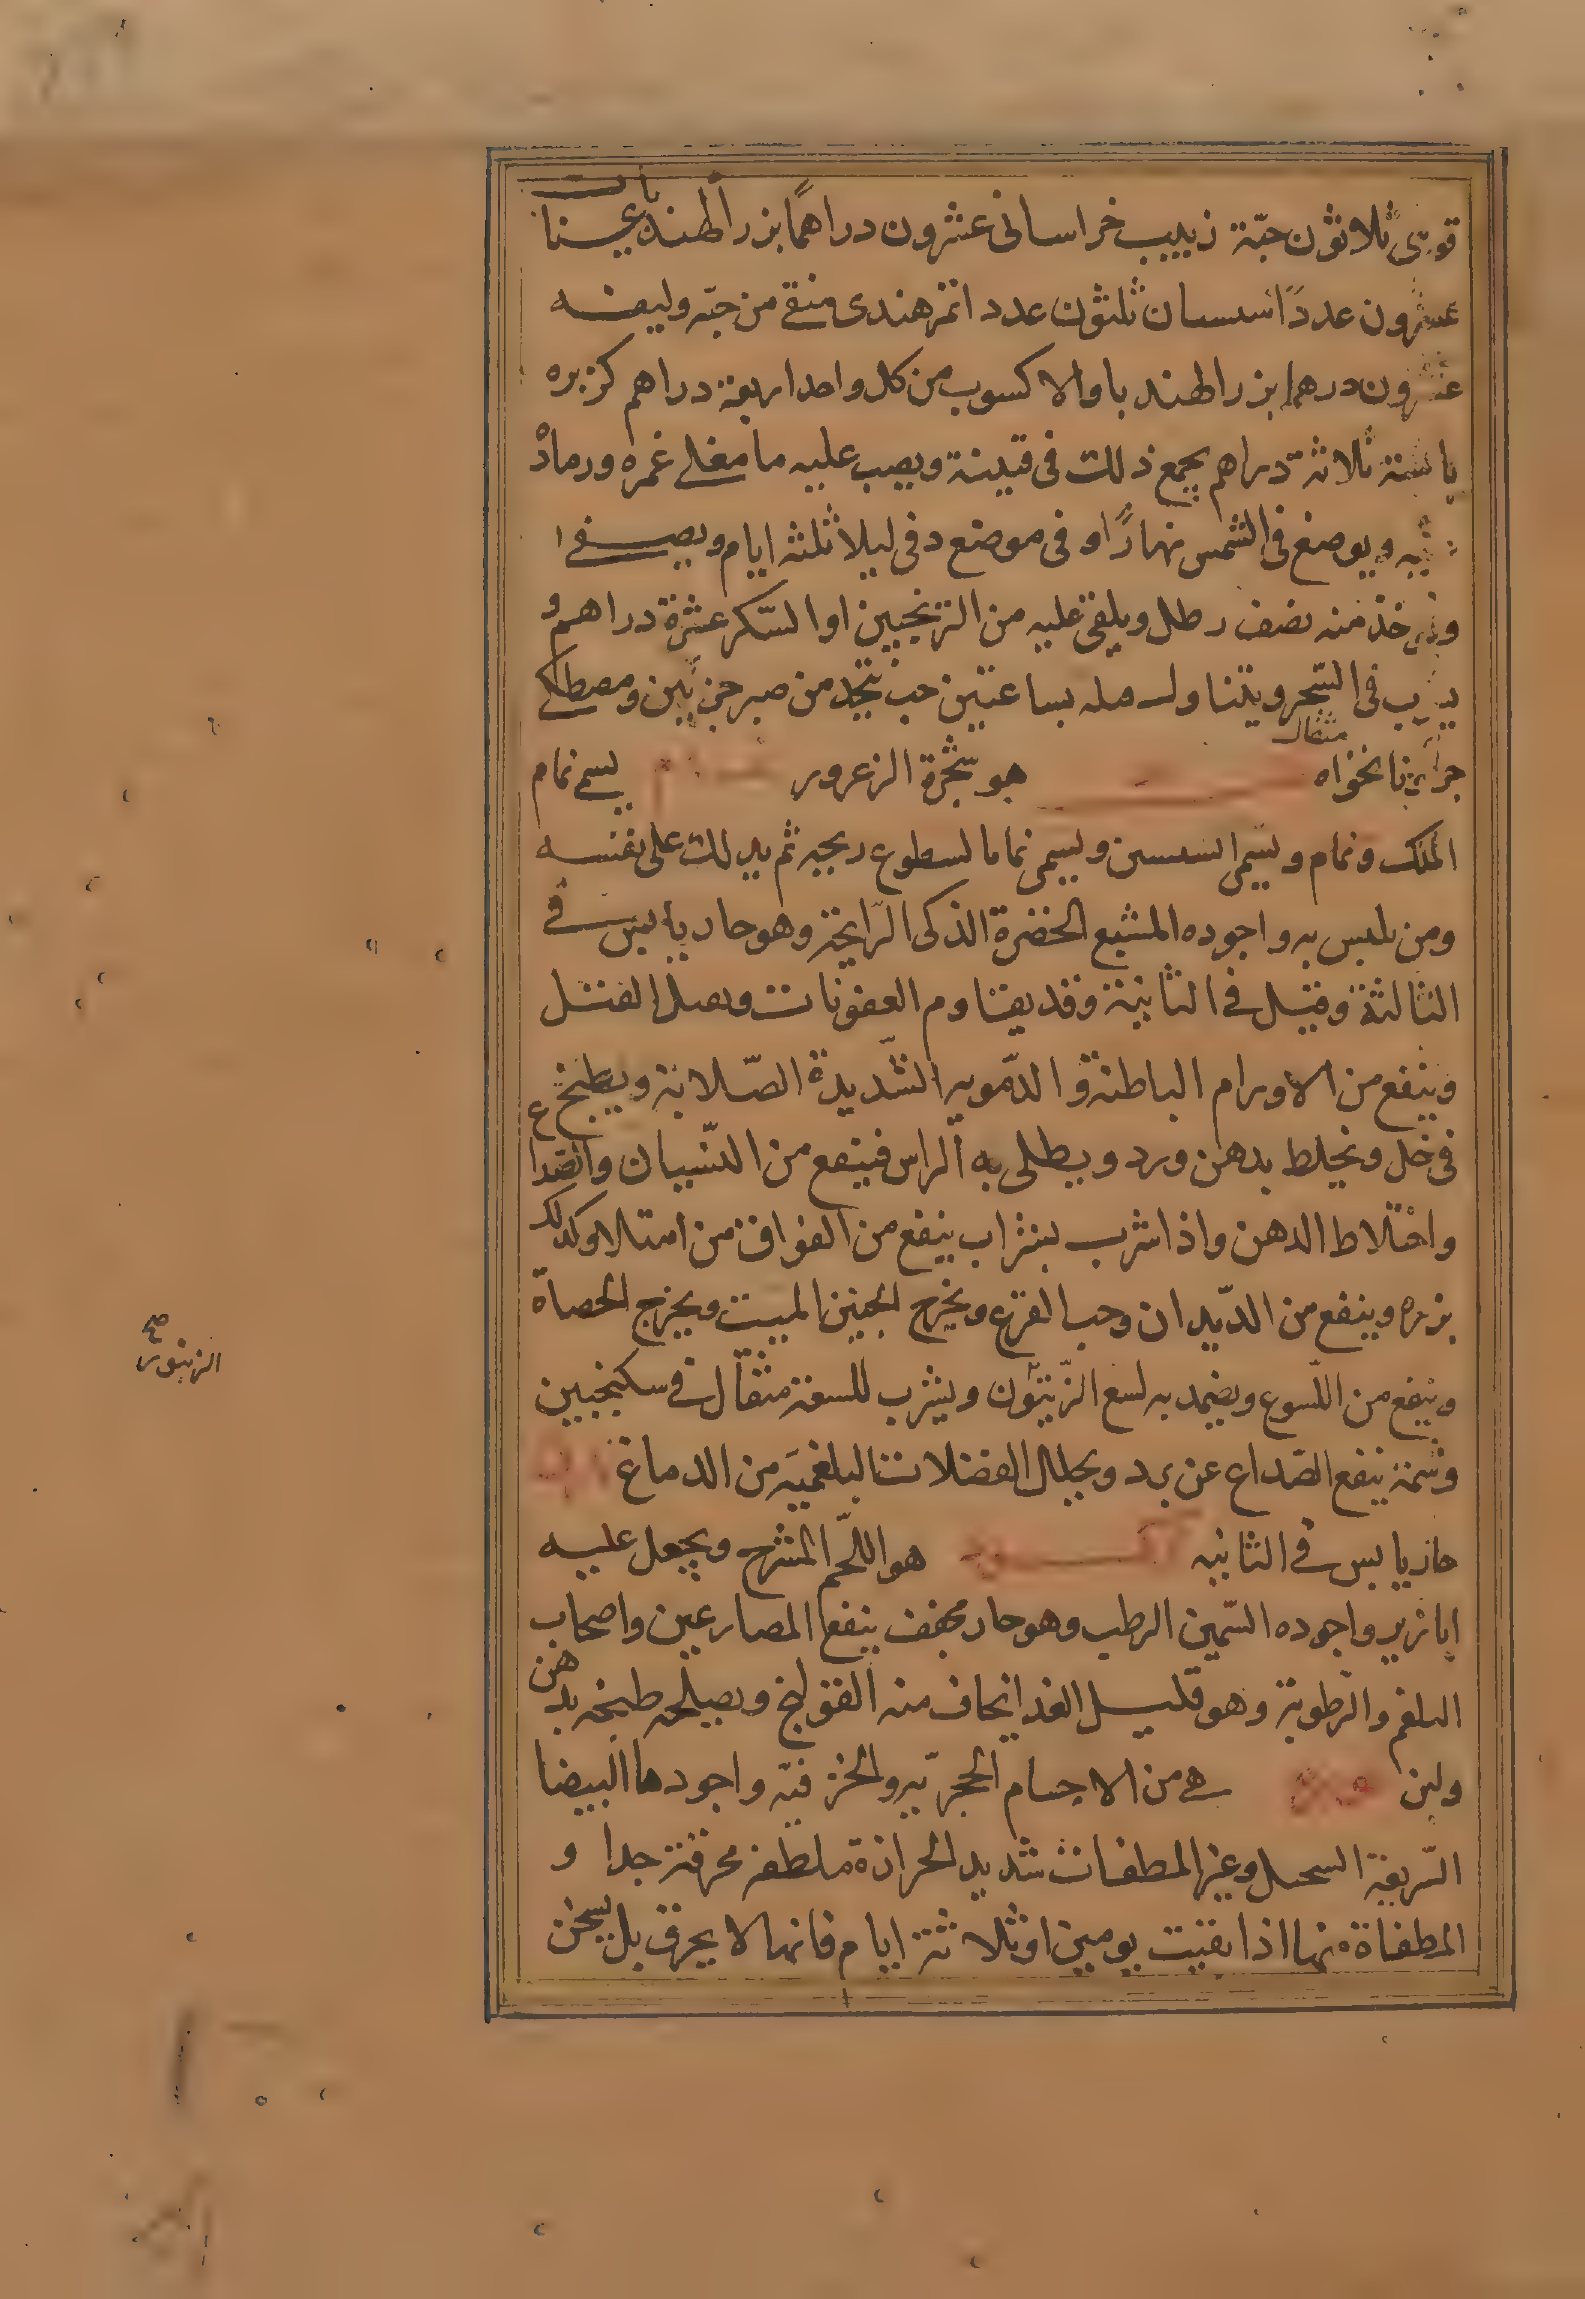 قومى ثلاثون حبّة زبيب خراسانى عشرون دراهمًا بزر الهندبا عينات
عشرون عددًا سبستان ثلثون عددا تمر هندى منقى من حبّه وليفه
عشرون درهما بزر الهندبا والاكسوب من كل واحد اربعة دراهم كزبره
يابسة ثلاثة دراهم يجمع ذلك فى قنينة ويصب عليه ما مغلى غمره ورماد
ويوضع فى الشمس نهارًا وفى موضع دفى ليلا ثلثه ايام ويصفى
ويوخذ منه نصف رطل ويلقى عليه من الترنجبين او السّكر عشرة دراهم و
يشرب فى السّحر ويتناول قبله بساعتين حب يتخذ من صبر جزئين ومصطكى
جزا نانخواه مثقال هو شجرة الزعرور نمام يسمى نمام
الملك ونمام ويسمى السيسبن ويسمى نماما لسطوع ريحيه ثم يدلك على نفسه
ومن يلبس به واجوده المشبع الخضرة الذكى الرّايحة وهو حار يابس فى
الثالثة وقيل فى الثانية وقد يقاوم العفونات ويقتل القمل
وينفع من الاورام الباطنة والدّمويه الشّديدة الصّلابة ويطبخ
فى خل ويخلط بدهن ورد ويطلى به الراس فينفع من النّسيان والصداع
واختلاط الدهن واذا شرب بشراب ينفع من الفواق من امتلا وكذلك
بزره وينفع من الدّيدان وحب القرع ويخرج الجنين الميت ويخرج الحصاة
وينفع من اللّسوع ويضمد به لسع الزّيتون ويشرب للسعة مثقال فى سكنجبين
وشمة ينفع الصّداع عن برد ويحلل الفضلات البلغميّه من الدماغ
حار يابس فى الثانيه هو اللّحم المشرح ويجعل عليه
ابازير واجوده السّمين الرطب وهو حار مجفف ينفع المصارعين واصحاب
البلغم والرّطوبة وهو قليل الغدا يخاف منه القولنج ويصلحه طبخه بدهن
ولبن هى من الاجسام الحجريّه والخزفيّه واجودها البيضا
السّريعة السحل وغير المطفات شديد الحرارة ملطفة محرقة جدا و
المطفاة منها اذا بقيت يومين او ثلاثة ايام فانها لا يحرق بل يسخن
الزنبور صح